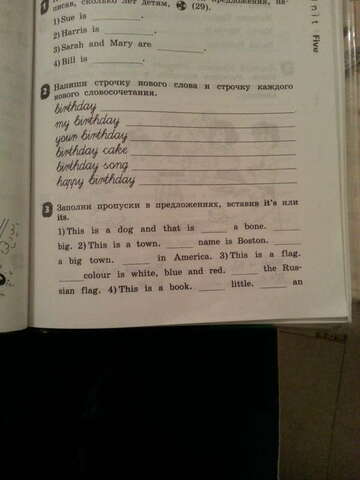 писав, сколько лет детям. (29).
1) Sue is ________.
2) Harris is ________.
3) Sarah and Mary are ________.
4) Bill is ________.
2 Напиши строчку нового слова и строчку каждого
нового словосочетания.
birthday
my birthday
your birthday
birthday cake
birthday song
happy birthday
3 Заполни пропуски в предложениях, вставив it's или
its.
1) This is a dog and that is ____ a bone. ____
big. 2) This is a town. ____ name is Boston. ____
a big town. ____ in America. 3) This is a flag.
____ colour is white, blue and red. ____ the Rus-
sian flag. 4) This is a book. ____ little. ____ an
Unit Five